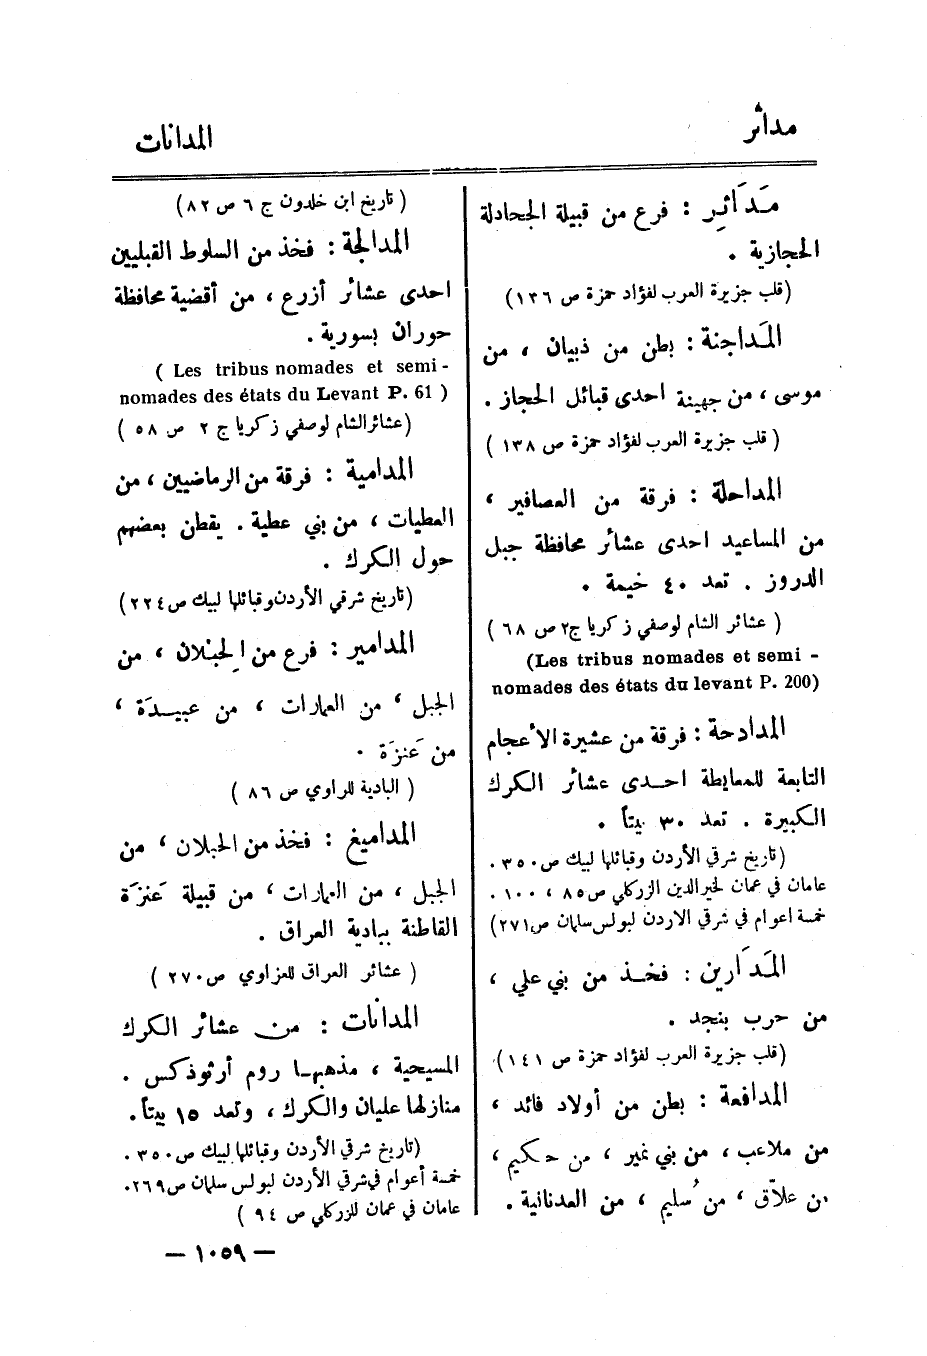 مدائر
المدانات
مَدَائِر : فرع من قبيلة الجحادلة
الحجازية .
(قلب جزيرة العرب لفؤاد حمزة ص ١٣٦)
المَدَاجنة : بطن من ذبيان ، من
موسى ، من جهينة احدى قبائل الحجاز .
( قلب جزيرة العرب لفؤاد حمزة ص ١٣٨ )
المداحلة : فرقة من العصافير ،
من المساعيد احدى عشائر محافظة جبل
الدروز . تعد ٤٠ خيمة .
( عشائر الشام لوصفي زكريا ج٢ ص ٦٨ )
(Les tribus nomades et semi -
nomades des états du levant P. 200)
المدادحة : فرقة من عشيرة الأعجام
التابعة للمعايطة احـدى عشائر الكرك
الكبيرة . تعد ٣٠ بيتاً .
(تاريخ شرقي الأردن وقبائلها لبيك ص ٣٥٠ .
عامان في عمان لخير الدين الزركلي ص ٨٥ ، ١٠٠ .
خمسة اعوام في شرقي الاردن لبولس سلمان ص ٢٧١)
المَدَارين : فخـذ من بني علي ،
من حرب بنجد .
(قلب جزيرة العرب لفؤاد حمزة ص ١٤١)
المدافعة : بطن من أولاد قائد ،
من ملاعب ، من بني نمير ، من حكيم ،
بن علاّق ، من سُليم ، من العدنانية .
( تاريخ ابن خلدون ج ٦ ص ٨٢)
المدالجة : فخذ من السلوط القبليين
احدى عشائر أزرع ، من أقضية محافظة
حوران بسورية .
( Les tribus nomades et semi -
nomades des états du Levant P. 61 )
(عشائر الشام لوصفي زكريا ج ٢ ص ٥٨ )
المدامية : فرقة من الرماضيين ، من
العطيات ، من بني عطية . يقطن بعضهم
حول الكرك .
(تاريخ شرقي الأردن وقبائلها لبيك ص ٢٢٤)
المدامير : فرع من الحبْلان ، من
الجبل ، من العمارات ، من عبيـدَة ،
من عَنزَة .
( البادية للراوي ص ٨٦ )
المداميغ : فخذ من الحبلان ، من
الجبل ، من العمارات ، من قبيلة عَنزَة
القاطنة ببادية العراق .
( عشائر العراق للعزاوي ص ٢٧٠ )
المدانات : من عشائر الكرك
المسيحية ، مذهبهـا روم أرثوذكس .
منازلها عليان والكرك ، وتعد ١٥ بيتاً .
(تاريخ شرقي الأردن وقبائلها لبيك ص ٣٥٠ .
خمسة أعوام في شرقي الأردن لبولس سلمان ص ٢٦٩.
عامان في عمان للزركلي ص ٩٤ )
— ١٠٥٩ —